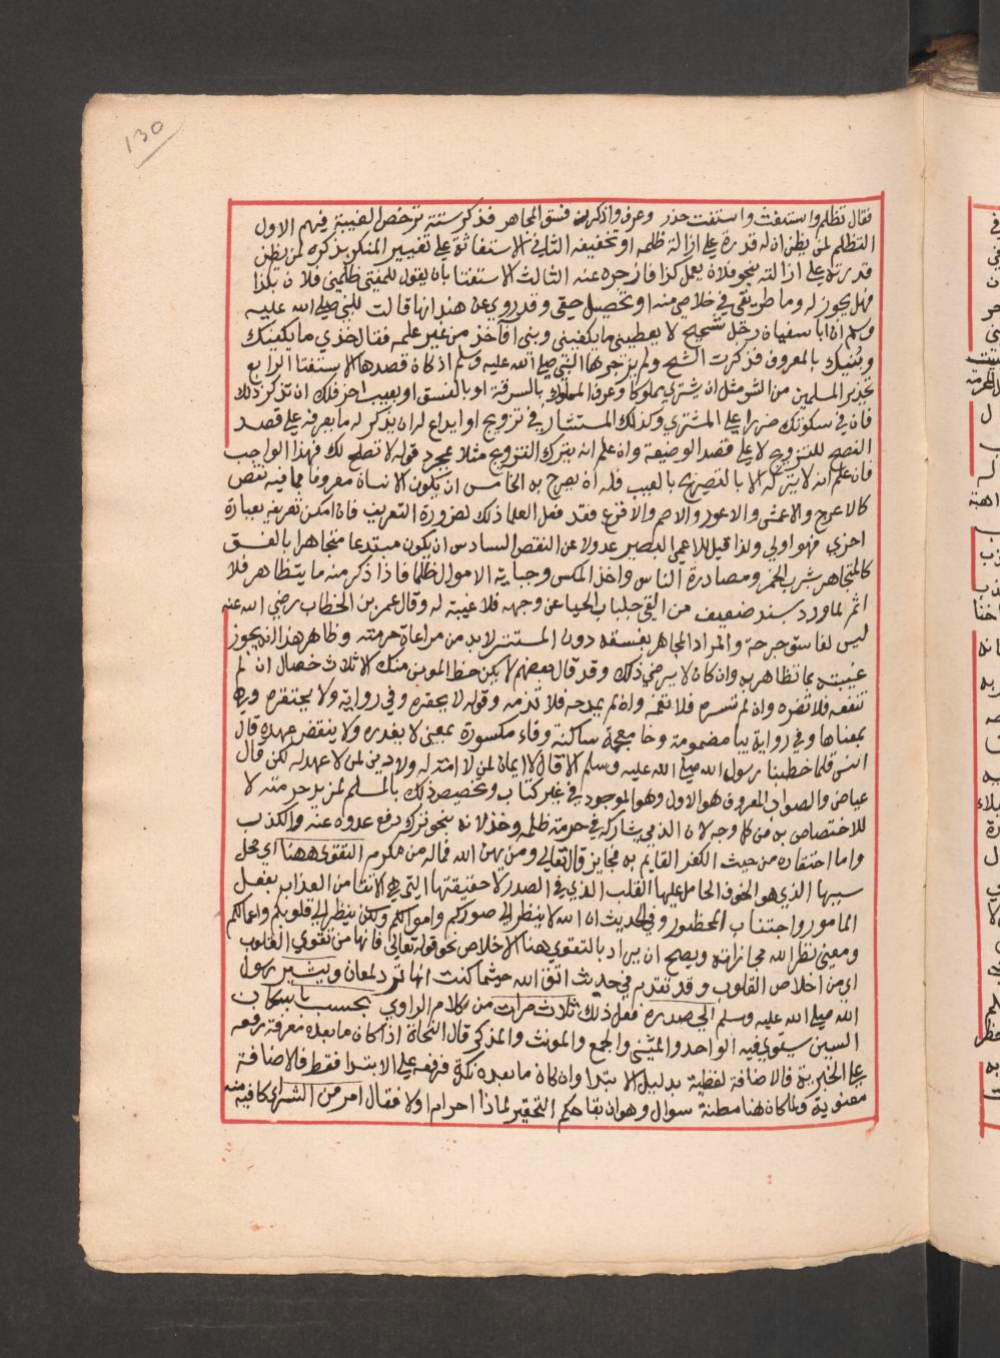 130
فقال تظلم واستغث واستفت حذر وعرف واذكرن فسق المجاهر فذكر ستة ترخص الغيبة فيهم الاول
التظلم لمن يظن ان له قدرة على ازالة ظلمه او تخفيفه الثاني الاستغاثة على تغيير المنكر بذكره لمن يظن
قدرته على ازالته بنحو فلان يعمل كذا فازجره عنه الثالث الاستفتا بان يقول للمفتي ظلمني فلان بكذا
فهل يجوز له وما طريقي في خلاصي منه او تحصيل حقي وقد روي عن هند انها قالت للنبي صلى الله عليه
وسلم ان ابا سفيان رجل شحيح لا يعطيني ما يكفيني وبني افآخذ من غير علمه فقال خذي ما يكفيك
وبنيك بالمعروف فذكرت الشح ولم يزجرها النبي صلى الله عليه وسلم اذ كان قصدها الاستفتا الرابع
تحذير المسلمين من الشر مثل ان يشتري مملوكا وعرف المملوك بالسرقة او بالفسق او بعيب اخر فلك ان تذكر ذلك
فان في سكوتك ضررا على المشتري وكذلك المستشار في تزويج او ايداع له ان يذكر له ما يعرفه على قصد
النصح للتزويج لا على قصد الوضيعة وان علم انه يترك التزويج مثلا بمجرد قوله لا تصلح لك فهذا الواجب
فان علم انه لا يتركه الا بالتصريح بالعيب فله ان يصرح به الخامس ان يكون الانسان معروفا بما فيه نقص
كالاعرج والاعمش والاعور والاصم والاقرع فقد فعل العلما ذلك لضرورة التعريف فان امكن تعريفه بعبارة
اخري فهو اولي ولذا قيل للاعمى البصير عدولا عن النقص السادس ان يكون مبتدعا متجاهرا بالفسق
كالمتجاهر بشرب الخمر ومصادرة الناس واخذ المكس وجباية الاموال ظلما فاذا ذكر منه ما يتظاهر فلا
اثم لما ورد بسند ضعيف من القي جلباب الحيا عن وجهه فلا غيبة له وقال عمر بن الخطاب رضي الله عنه
ليس لفاسق حرمة والمراد المجاهر بفسقه دون المستتر لابد من مراعاة حرمته وظاهر هذا انه يجوز
غيبته بما تظاهر به وان كان لا يرضي ذلك وقد قال بعضهم لا يكن حظ المومن منك الا ثلاث خصال ان لم
تنفعه فلا تضره وان لم تسره فلا تغمه وان لم تمدحه فلا تذمه وقوله لا يحقره وفي رواية ولا يحتقره وهي
بمعناها وفي رواية بيا مضمومة وخا معجمة ساكنة وفاء مكسورة بمعنى لا يغدره ولا ينقض عهده قال
انس قلما خطبنا رسول الله صلى الله عليه وسلم الا قال لا ايمان لمن لا امانة له ولا دين لمن لا عهد له لكن قال
عياض والصواب المعروف هو الاول وهو الموجود في غير كتاب وتخصيص ذلك بالمسلم لمزيد حرمته لا
للاختصاص به من كل وجه لان الذمي يشاركه في حرمة ظلمه وخذلانه بنحو تركه دفع عدوه عنه والكذب
واما احتقاره من حيث الكفر القايم به فجايز قال تعالي ومن يهن الله فما له من مكرم التقوي ههنا اي محل
سببها الذي هو الخوف الحامل عليها القلب الذي في الصدر لا حقيقتها التي هي الاتقا من العذاب بفعل
المامور واجتناب المحظور وفي الحديث ان الله لا ينظر الى صوركم واموالكم ولكن ينظر الى قلوبكم واعمالكم
ومعنى نظر الله مجازاته ويصح ان يراد بالتقوي هنا الاخلاص نحو قوله تعالى فانها من تقوي القلوب
اي من اخلاص القلوب وقد تقدم في حديث اتق الله حيثما كنت انها ترد لمعان ويشير رسول
الله صلى الله عليه وسلم الي صدره فعل ذلك ثلاث مرات من كلام الراوي بحسب باسكان
السين يستوي فيه الواحد والمثنى والجمع والمونث والمذكر قال النحاة اذا كان ما بعده معرفة رفعه
على الخبرية فالاضافة لفظية بدليل الابتدا وان كان ما بعده نكرة فرفعه على الابتدا فقط فالاضافة
معنوية ولما كان هنا مظنة سوال وهو ان يقال لم التحقير لماذا احرام او لا فقال امر من الشر اي كافيه منه